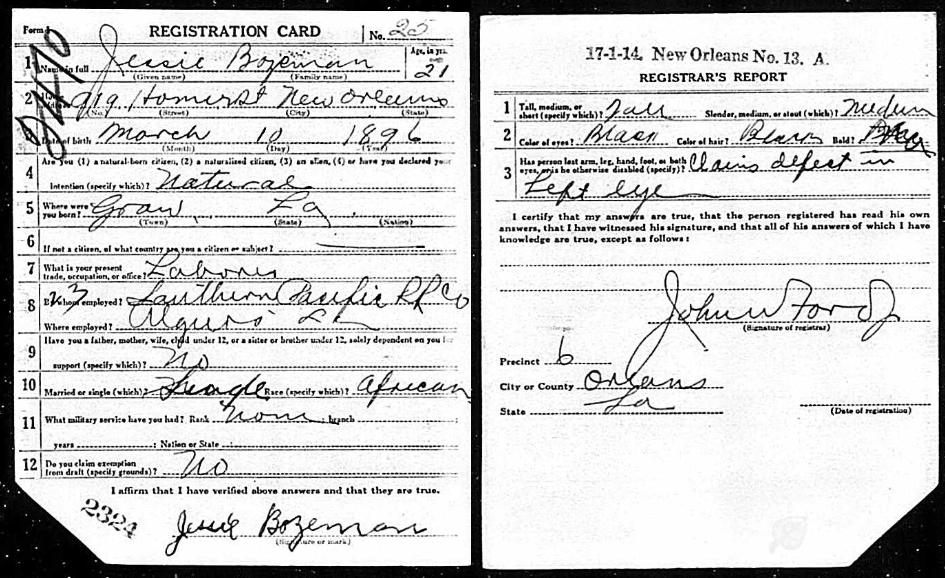 Form 1 REGISTRATION CARD No. 25
1 Name in full Jessie Bozeman Age, in yrs. 21
(Given name) (Family name)
2 919 Homer St New Orleans
(No.) (Street) (City) (State)
Date of birth March 10 1896
(Month) (Day) (Year)
4 Are you (1) a natural-born citizen, (2) a naturalized citizen, (3) an alien, (4) or have you declared your
intention (specify which)? Natural
5 Where were you born? La
(Town) (State) (Nation)
6 If not a citizen, of what country are you a citizen or subject?
7 What is your present trade, occupation, or office? Laborer
8 By whom employed? Southern Pacific RR Co
Where employed? Algiers La
9 Have you a father, mother, wife, child under 12, or a sister or brother under 12, solely dependent on you for
support (specify which)? No
10 Married or single (which)? Single Race (specify which)? African
11 What military service have you had? Rank None ; branch
years ; Nation or State
12 Do you claim exemption from draft (specify grounds)? No
I affirm that I have verified above answers and that they are true.
2324
Jessie Bozeman
(Signature or mark)
17-1-14. New Orleans No. 13. A.
REGISTRAR'S REPORT
1 Tall, medium, or short (specify which)? Tall Slender, medium, or stout (which)? Medium
2 Color of eyes? Black Color of hair? Black Bald?
3 Has person lost arm, leg, hand, foot, or both eyes, or is he otherwise disabled (specify)? Claims defect in
Left eye
I certify that my answers are true, that the person registered has read his own
answers, that I have witnessed his signature, and that all of his answers of which I have
knowledge are true, except as follows:
John W Ford Jr
(Signature of registrar)
Precinct 6
City or County Orleans
State La
(Date of registration)